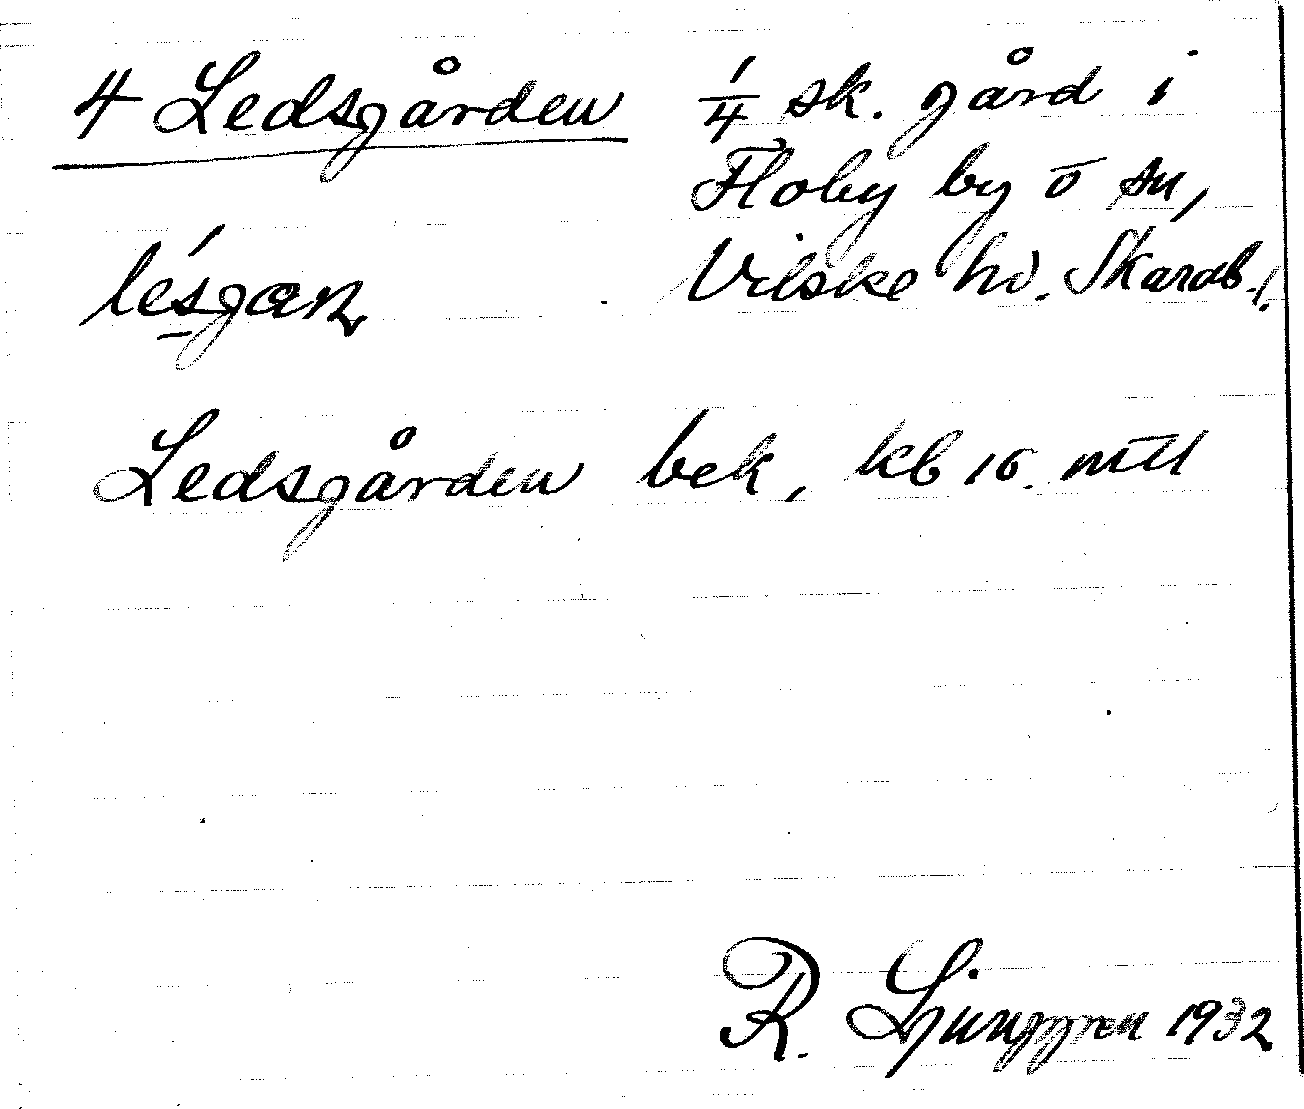 4 Ledsgården
1/4 sk. gård i
Floby by o sn,
Vilske hd. Skarab. l.
lésgan
Ledsgården bek, kb 10. mtl
R. Ljunggren 1932